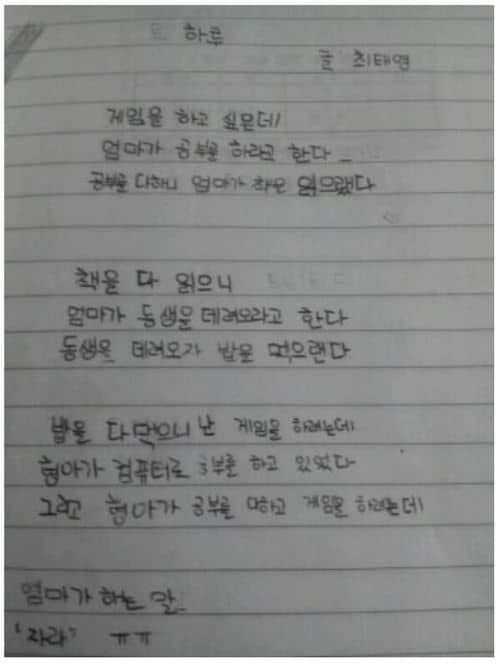 하루
글 최태영
게임을 하고 싶은데!
엄마가 공부를 하라고 한다 _
공부를 다하니 엄마가 책을 읽으랬다
책을 다 읽으니
엄마가 동생을 데려오라고 한다
동생을 데려오자 밥을 먹으랜다
밥을 다먹으니 난 게임을 하려는데!
형아가 컴퓨터로 공부를 하고 있었다
그리고 형아가 공부를 다하고 게임을 하려는데!
엄마가 하는 말..
"자라" ㅠㅠ